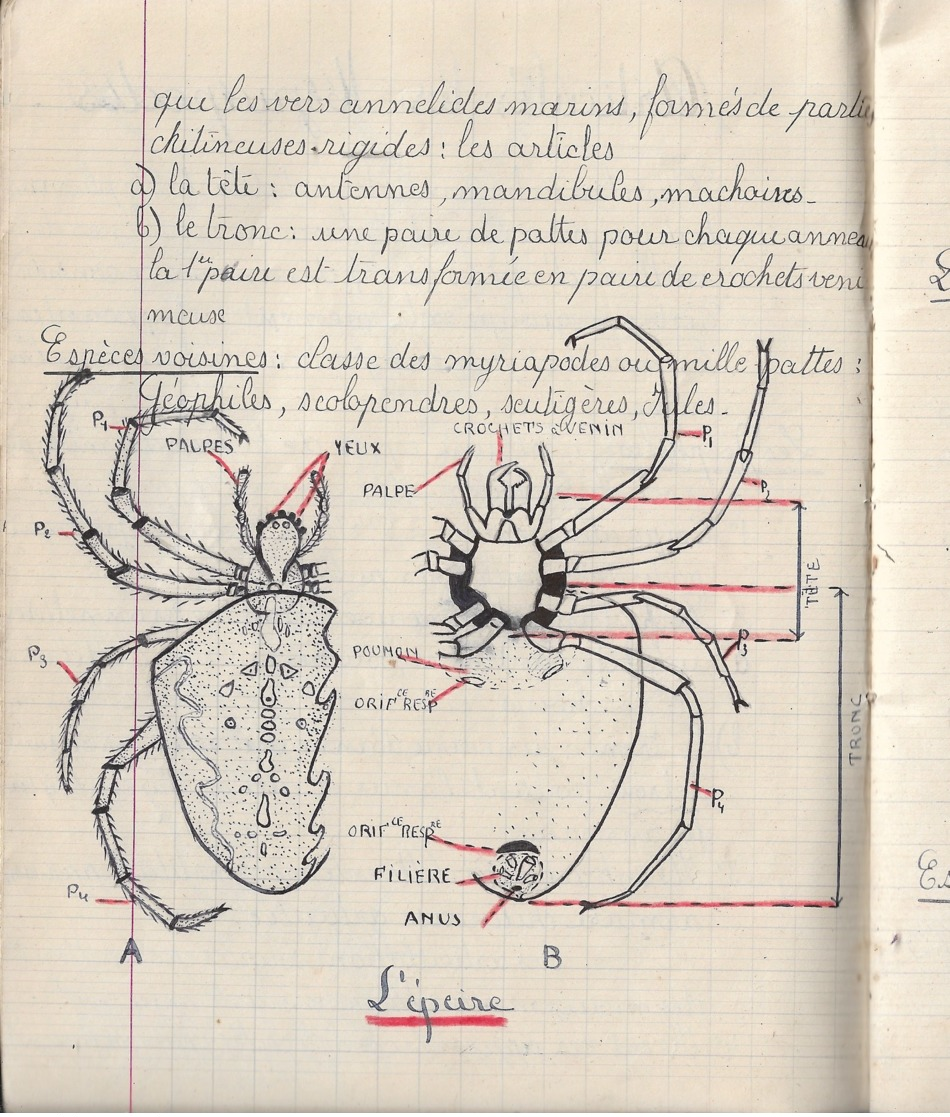 que les vers annelides marins, formés de partie
chitineuses rigides : les articles
a) la tête : antennes, mandibules, machoires.
b) le tronc : une paire de pattes pour chaque annea
la 1ère paire est transformée en paire de crochets veni
meuse
Espèces voisines : classe des myriapodes ou mille pattes :
Géophiles, scolopendres, scutigères, Iules.
P1
PALPES
YEUX
P2
P3
P4
A
CROCHETS à VENIN
PALPE
P1
P2
TÊTE
POUMON
P3
ORIFCE RESPRE
TRONC
P4
ORIFCE RESPRE
FILIÈRE
ANUS
B
L'épeire
Es